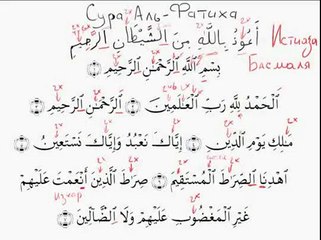 Сура Аль-Фатиха
أَعُوذُ بِاللَّهِ مِنَ الشَّيْطَانِ الرَّجِيمِ Истиаза
بِسْمِ اللَّهِ الرَّحْمَٰنِ الرَّحِيمِ ۝ Басмаля
الْحَمْدُ لِلَّهِ رَبِّ الْعَالَمِينَ ۝ الرَّحْمَٰنِ الرَّحِيمِ ۝
مَالِكِ يَوْمِ الدِّينِ ۝ إِيَّاكَ نَعْبُدُ وَإِيَّاكَ نَسْتَعِينُ ۝
اهْدِنَا الصِّرَاطَ الْمُسْتَقِيمَ ۝ صِرَاطَ الَّذِينَ أَنْعَمْتَ عَلَيْهِمْ
Изхар
غَيْرِ الْمَغْضُوبِ عَلَيْهِمْ وَلَا الضَّالِّينَ ۝